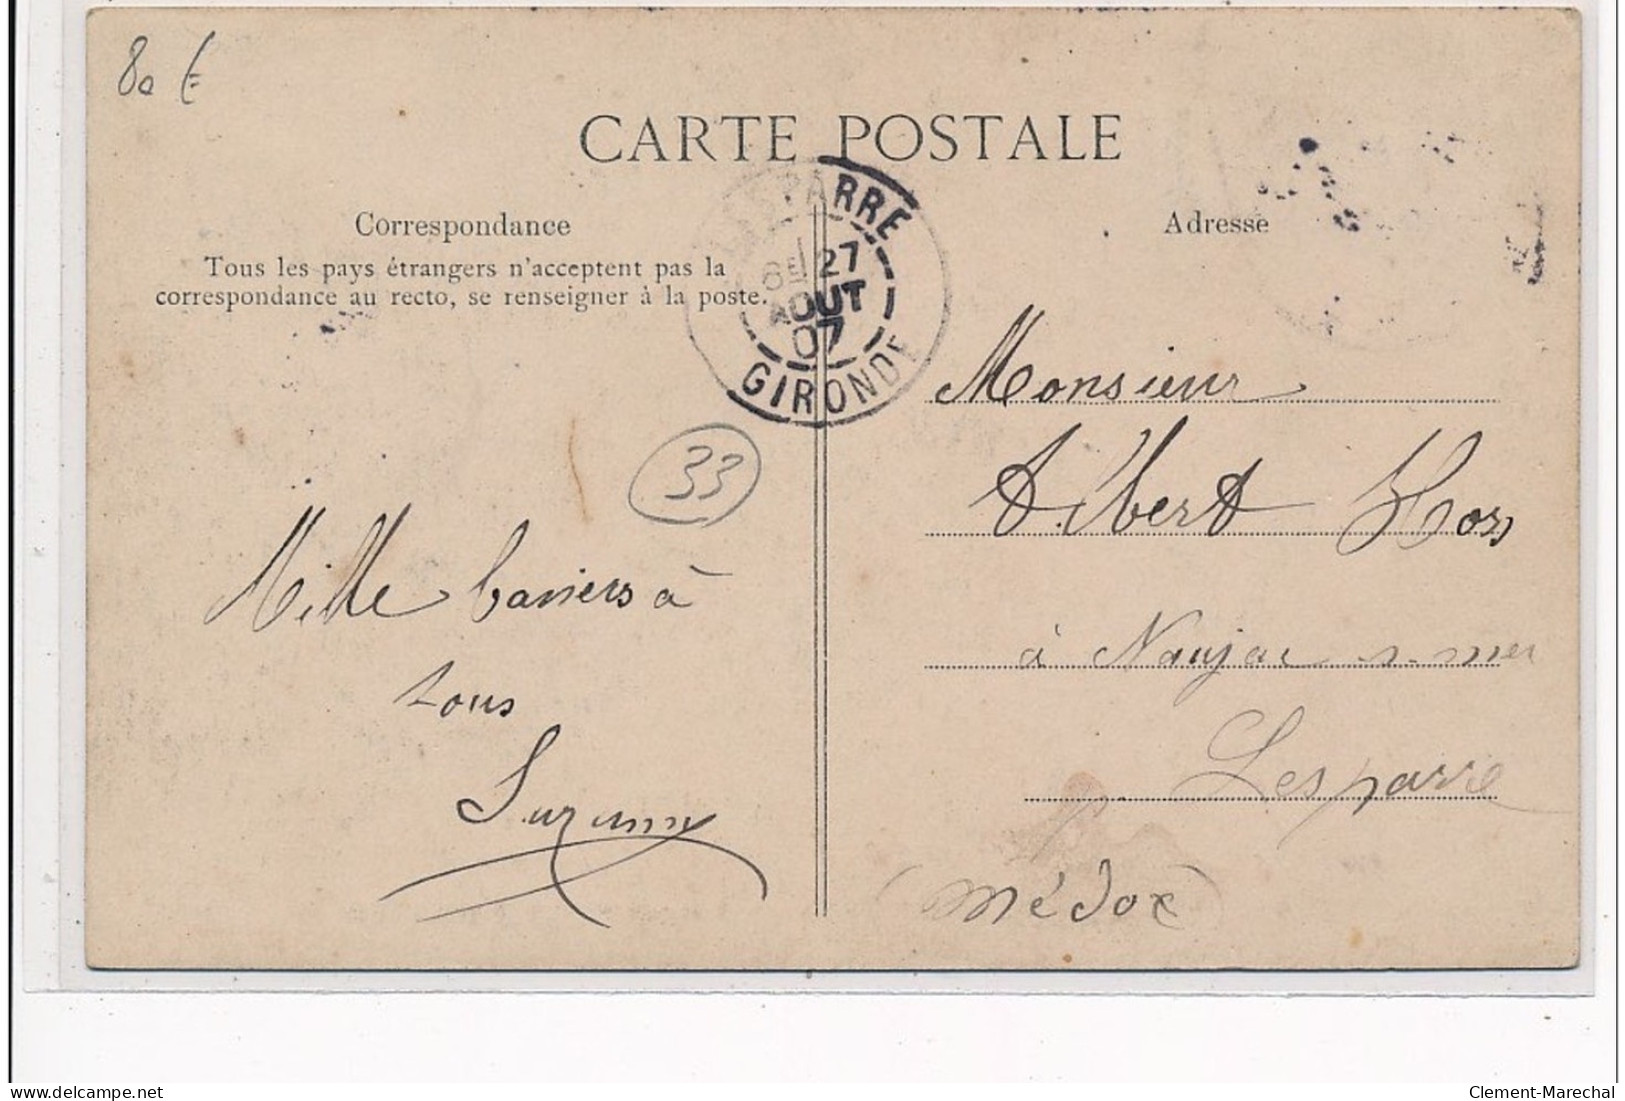 80 €
CARTE POSTALE
LESPARRE
8E 27
AOUT
07
GIRONDE
Correspondance
Tous les pays étrangers n'acceptent pas la
correspondance au recto, se renseigner à la poste.
Adresse
33
Mille baniers à
tous
Suzanne
Monsieur
Albert Hors
à Naujac s-mer
Lesparre
(Médoc)
delcampe.net
Clement-Marechal